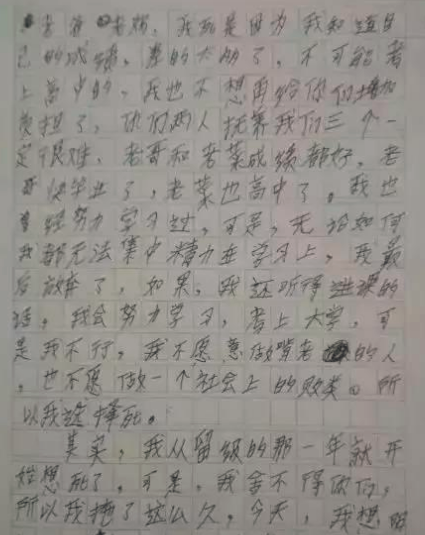 老爸老妈，我就是因为我知道自
己的成绩，差的太了，不可能考
上高中的，我也不想再给你们增加
负担了，你们两人抚养我们三个一
定很难，老哥和老菜成绩都好，老
哥快毕业了，老菜也高中了，我也
曾经努力学习过，可是，无论如何
我都无法集中精力在学习上，我最
后放弃了，如果，我还听得进课的
话，我会努力学习，考上大学，可
是我不行，我不愿意做啃老的人
，也不愿做一个社会上的败类。所
以我选择死。
其实，我从留级的那一年就开
始想死了，可是，我舍不得你们，
所以我拖了这么久，今天，我想明